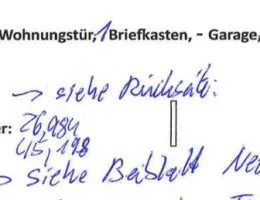 Wohnungstür, 1 Briefkasten, - Garage,
→ siehe Rückseite:
er: 26,984
45,198
→ siehe Beiblatt Ne